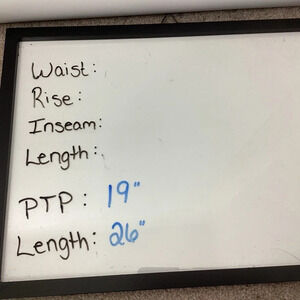 Waist:
Rise:
Inseam:
Length:
PTP: 19"
Length: 26"